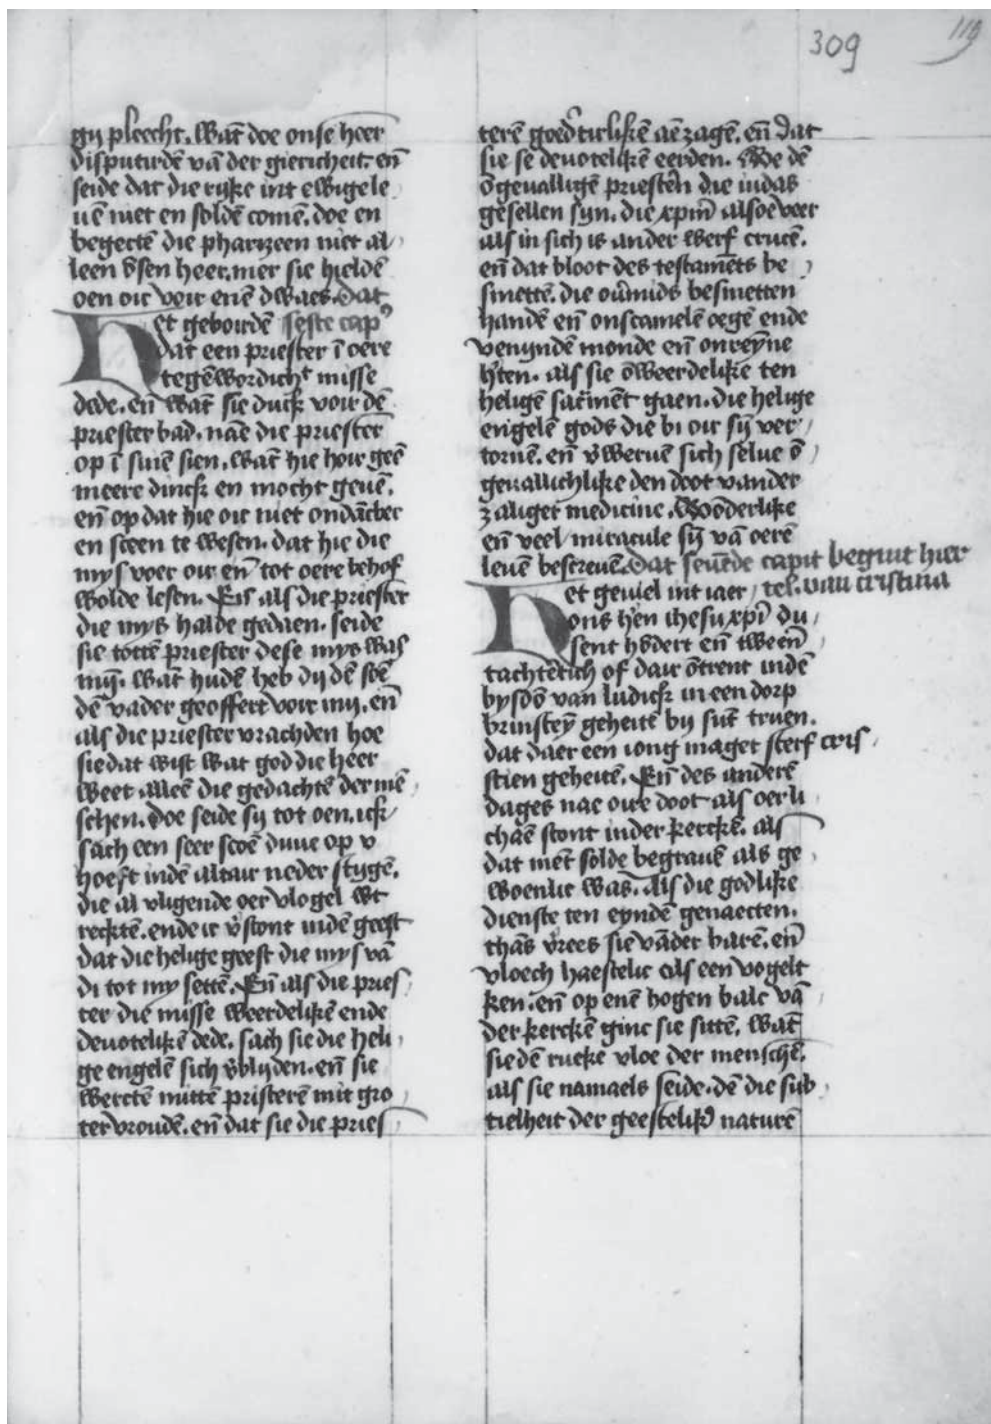 309
119
gij pleecht. wat̄ doe onse heer
disputirdē vā der giericheit. en̄
seide dat die rijke int ewige le
uē niet en soldē comē. doe en
begectē die pharizeen niet al
leen v̄sen heer. mer sie hieldē
oen oic voir enē dwaes. Dat
Het geboirdē seste cap⁹
dat een priester ī oere
tegēwordicht misse
dede. en̄ wat̄ sie duck voir dē
priester bad. nāe die priester
op ī sinē sien. wat̄ hie hoir geē
meere dinck en mocht geuē.
en̄ op dat hie oir niet ondācber
en sceen te wesen. dat hie die
mys voer oir en̄ tot oere behof
wolde lesen. En̄ als die priester
die mys halde gedaen. seide
sie tottē priester dese mys was
mij. wat̄ hudē heb dij dē scē
dē vader geoffert voir mij. en̄
als die priester vrachden hoe
sie dat wist wat god die heer
weet alleē die gedachtē der mē
schen. Doe seide sij tot oen. ick
sach een seer scoē duue op v
hoeft indē altair neder stygē.
die al vligende oer vlogel wt
recktē. ende ic v̄stont indē geest
dat die helige geest die mys vā
di tot my settē. En̄ als die pries
ter die misse weerdelikē ende
deuotelikē dede. sach sie die heli
ge engelē sich v̄blijden. en̄ sie
werctē mittē pristerē mit gro
ter vroudē. en̄ dat sie die pries
terē goed̄tirlikē aēzagē. en̄ dat
sie se deuotelikē eerden. Woe dē
ōgeualligē priester̄n die iudas
gesellen sijn. die xp̄m̄ alsoe veer
als in sich is ander werf crucē.
en̄ dat bloot des testamēts be
smettē. die ou̅mids besmetten
handē en̄ onscamelē oegē ende
venijndē monde en̄ onreyne
h̄ten. als sie ōweerdelike ten
heligē sac̄mēt gaen. die helige
engelē gods die bi oir sij̄ ver
tornē. en̄ v̄weruē sich selue ō
geuallichlike den doot vander
zaliger medicine. Wōderlike
en̄ veel miracule sij̄ vā oerē
leuē bescreuē. Dat seuēde capit begint hier
Het geuiel int iaer tel. van cristina
ons h̄en ihesu xp̄i du
sent hōdert en̄ tweēn̄
tachtētich of dair ōtrent indē
bysdō van ludick in een dorp
brinstey̅ geheitē bij sūt truen.
dat daer een iong maget sterf cris
stien geheitē. En̄ des anderē
dages nae oire doot als oer li
chāē stont inder kerckē. als
dat mēt solde begrauē als ge
woenlic was. Als die godlike
dienste ten eyndē genaecten.
thās v̄rees sie vāder barē. en̄
vloech haestelic als een vogelt
ken. en̄ op enē hogen balc vā
der kerckē ginc sie sittē. wat̄
sie dē rueke vloe der menschē.
als sie namaels seide. dē die sub
tielheit der geestelik̄ naturē